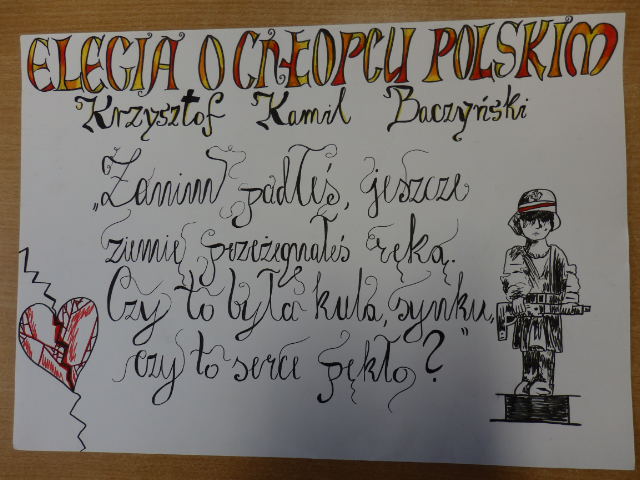 ELEGIA O CHŁOPCU POLSKIM
Krzysztof Kamil Baczyński
„Zanim padłeś, jeszcze
ziemię przeżegnałeś ręką.
Czy to była kula, synku,
czy to serce pękło?"